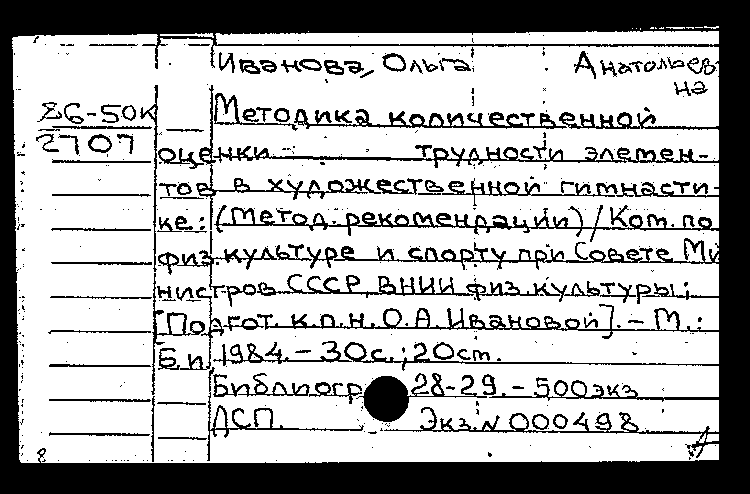 Иванова, Ольга Анатольев-
на
Э6-50к
2707
Методика количественной
оценки трудности элемен-
тов в художественной гимнасти-
ке: (Метод. рекомендации) / Ком. по
физ. культуре и спорту при Совете Ми
нистров СССР, ВНИИ физ. культуры;
[Подгот. к.п.н. О.А. Ивановой]. – М.:
Б.и., 1984. – 30с.; 20см.
Библиогр 28-29. – 500экз
ДСП. Экз. N 000498
8